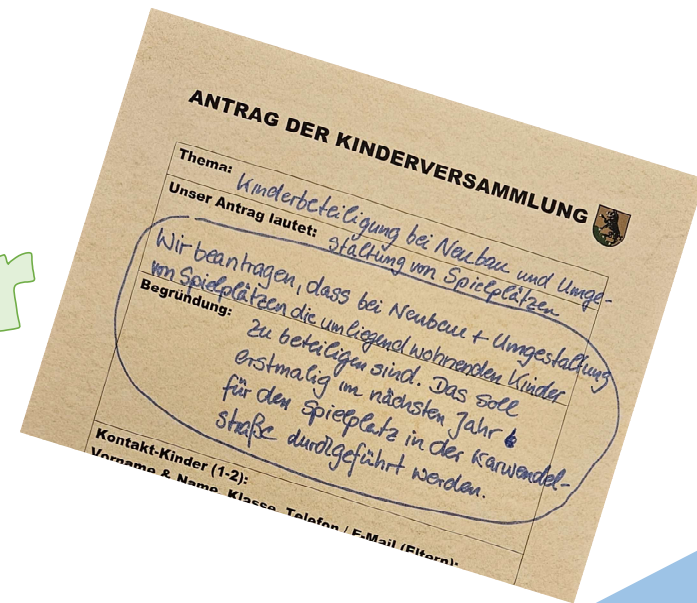 ANTRAG DER KINDERVERSAMMLUNG
Thema: Kinderbeteiligung bei Neubau und Umge-
Unser Antrag lautet: staltung von Spielplätzen
Wir beantragen, dass bei Neubau + Umgestaltung
von Spielplätzen die umliegend wohnenden Kinder
Begründung: zu beteiligen sind. Das soll
erstmalig im nächsten Jahr
für den Spielplatz in der Karwendel-
straße durchgeführt werden.
Kontakt-Kinder (1-2):
Vorname & Name, Klasse, Telefon / E-Mail (Eltern):